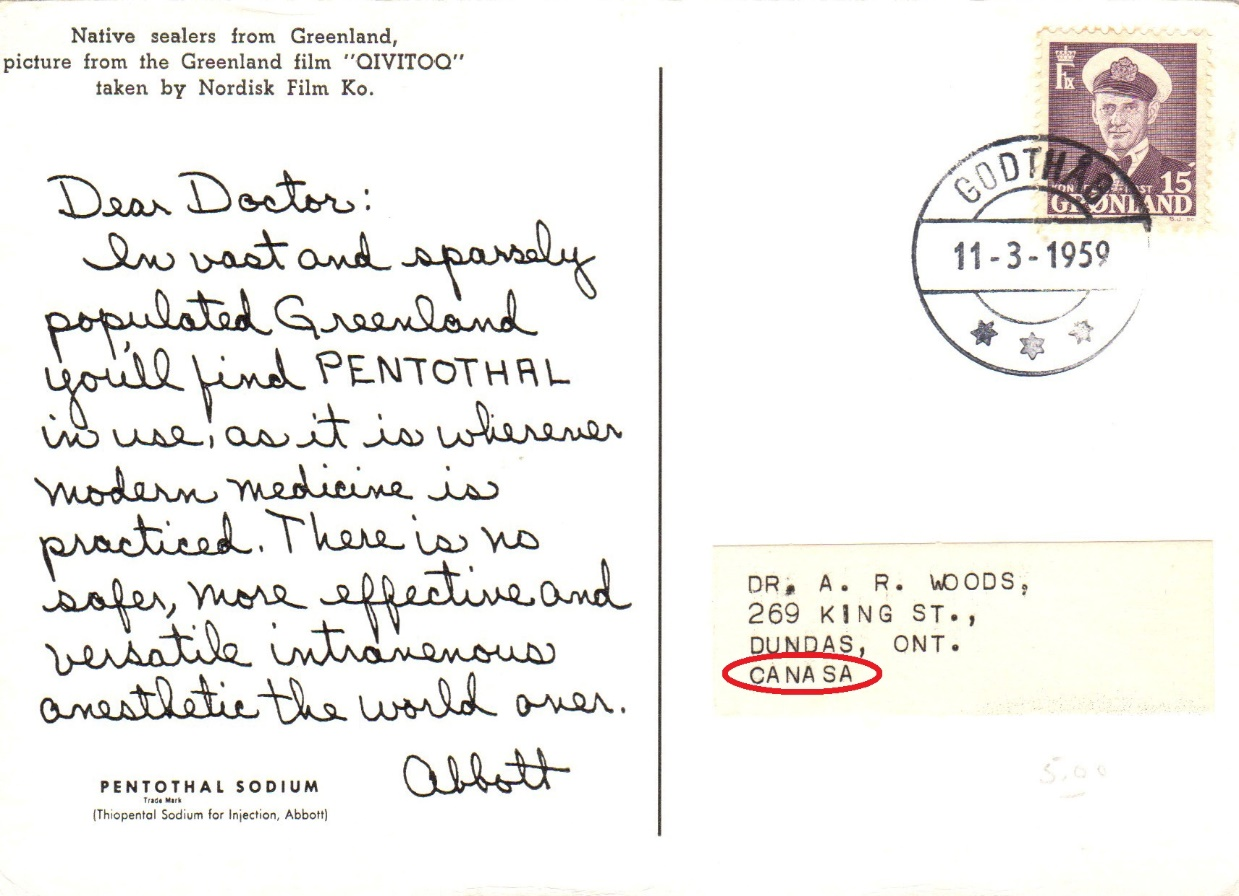 Native sealers from Greenland,
picture from the Greenland film "QIVITOQ"
taken by Nordisk Film Ko.
Dear Doctor:
In vast and sparsely
populated Greenland
you'll find PENTOTHAL
in use, as it is wherever
modern medicine is
practiced. There is no
safer, more effective and
versatile intravenous
anesthetic the world over.
Abbott
PENTOTHAL SODIUM
Trade Mark
(Thiopental Sodium for Injection, Abbott)
15
GRØNLAND
GODTHÅB
11-3-1959
DR. A. R. WOODS,
269 KING ST.,
DUNDAS, ONT.
CANASA
5.00